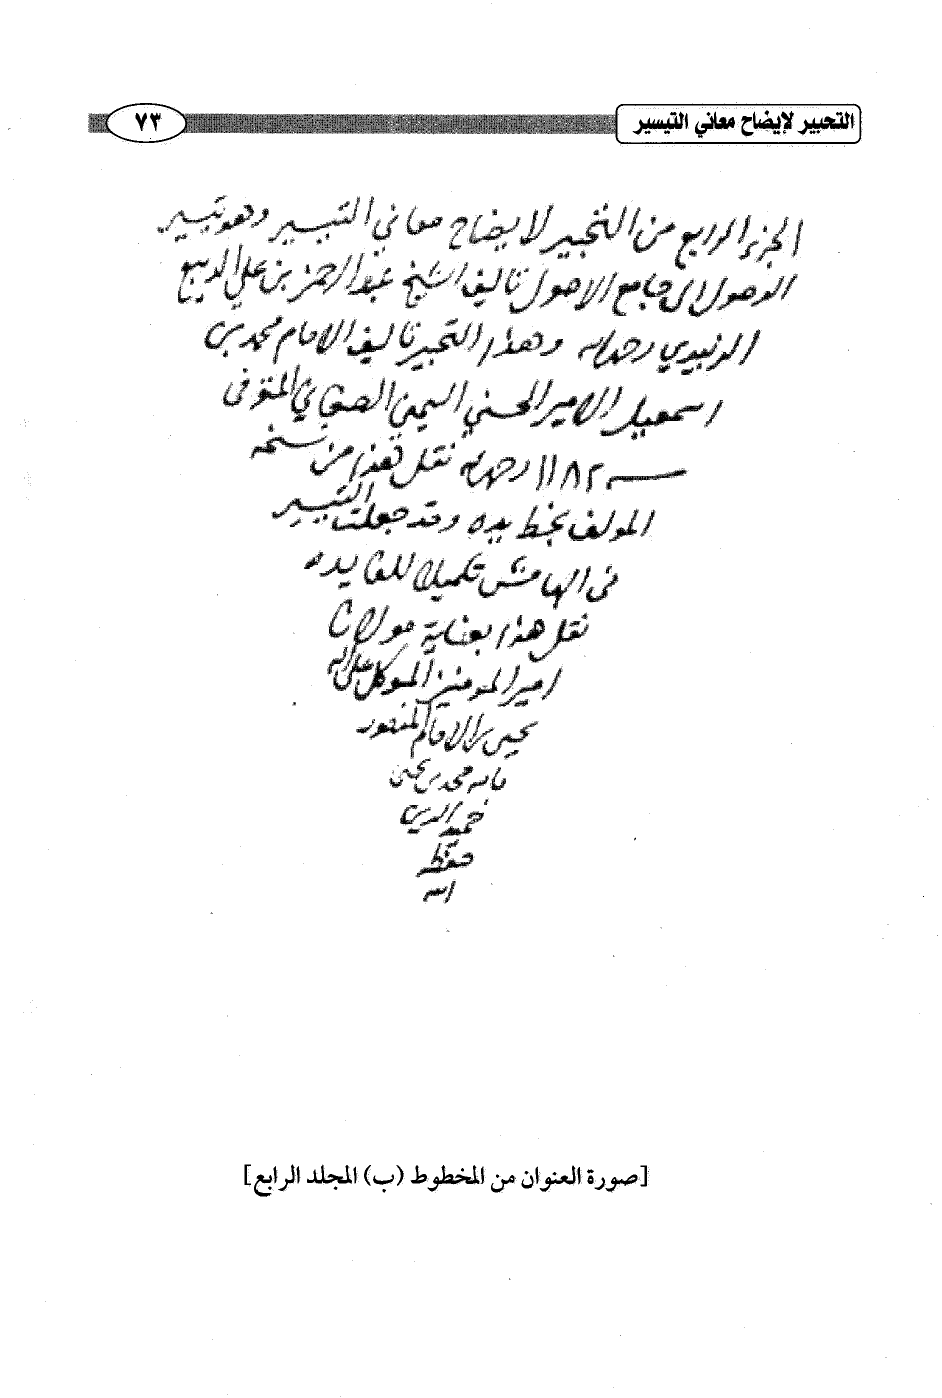 التحبير لإيضاح معاني التيسير
٧٣
الجزء الرابع من التحبير لايضاح معاني التيسير وهو تيسير
الوصول الى جامع الاصول تاليف الشيخ عبد الرحمن بن علي الديبع
الزبيدي رحمه الله وهذا التحبير تاليف الامام محمد بن
اسمعيل الامير الحسني اليمني الصنعاني المتوفى
سنة ١١٨٢ رحمه الله نقل هذا من نسخة
المولف بخط يده وقد جعلت التيسير
في الهامش تكميلا للفايده
نقل هذا بعناية مولانا
امير المومنين المتوكل على الله
يحيى بن الامام المنصور
بالله محمد بن يحيى
حميد الدين
حفظه
الله
[صورة العنوان من المخطوط (ب) المجلد الرابع]